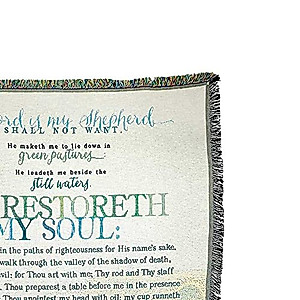 ord is my Shepherd
SHALL NOT WANT.
He maketh me to lie down in
green pastures.
He leadeth me beside the
still waters.
RESTORETH
MY SOUL:
in the paths of righteousness for His name's sake.
walk through the valley of the shadow of death,
vil: for Thou art with me; Thy rod and Thy staff
. Thou preparest a table before me in the
Thou anointest my head with oil; my cup runneth